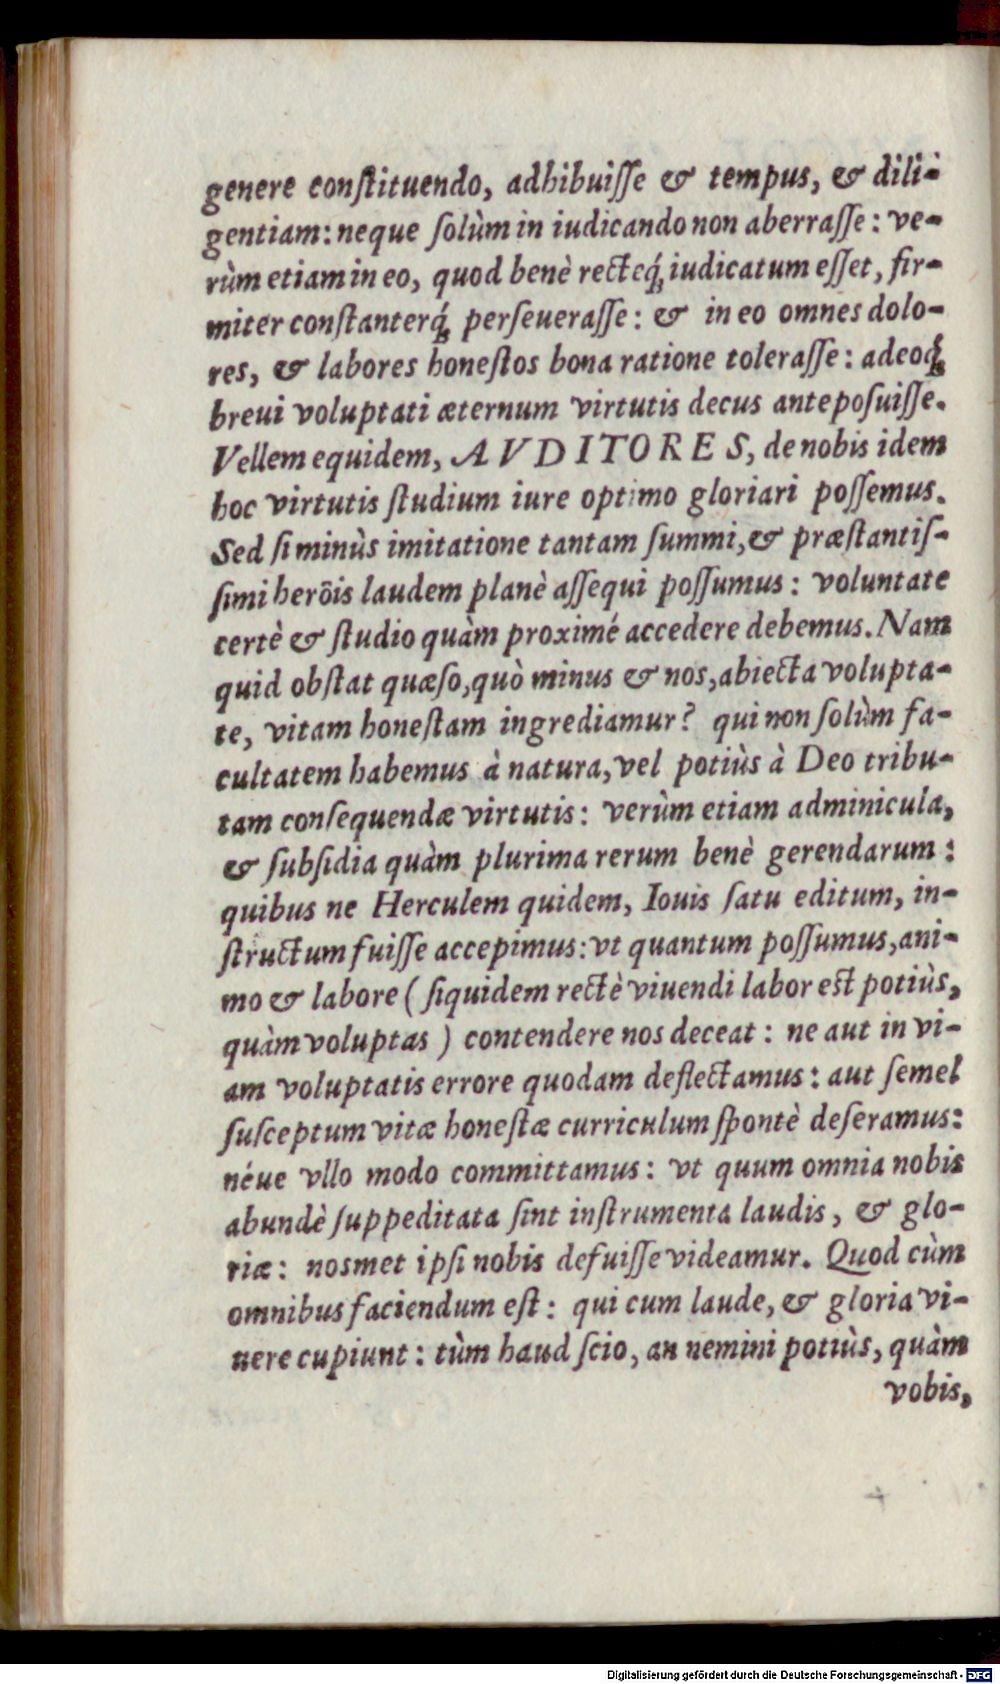 genere conſtituendo, adhibuiſſe & tempus, & dili-
gentiam: neque ſolùm in iudicando non aberraſſe: ve-
rùm etiam in eo, quod benè recteq́; iudicatum eſſet, fir-
miter conſtanterq́; perſeueraſſe: & in eo omnes dolo-
res, & labores honeſtos bona ratione toleraſſe: adeoq́;
breui voluptati æternum virtutis decus antepoſuiſſe.
Vellem equidem, AVDITORES, de nobis idem
hoc virtutis ſtudium iure optimo gloriari poſſemus.
Sed ſi minùs imitatione tantam ſummi, & præſtantiſ-
ſimi herôis laudem planè aſſequi poſſumus: voluntate
certè & ſtudio quàm proximé accedere debemus. Nam
quid obſtat quæſo, quò minus & nos, abiecta volupta-
te, vitam honeſtam ingrediamur? qui non ſolùm fa-
cultatem habemus à natura, vel potiùs à Deo tribu-
tam conſequendæ virtutis: verùm etiam adminicula,
& ſubſidia quàm plurima rerum benè gerendarum:
quibus ne Herculem quidem, Iouis ſatu editum, in-
ſtructum fuiſſe accepimus: vt quantum poſſumus, ani-
mo & labore ( ſiquidem rectè viuendi labor eſt potiùs,
quàm voluptas ) contendere nos deceat: ne aut in vi-
am voluptatis errore quodam deflectamus: aut ſemel
ſuſceptum vitæ honeſtæ curriculum ſpontè deſeramus:
néue vllo modo committamus: vt quum omnia nobis
abundè ſuppeditata ſint inſtrumenta laudis, & glo-
riæ: noſmet ipſi nobis defuiſſe videamur. Quod cùm
omnibus faciendum eſt: qui cum laude, & gloria vi-
uere cupiunt: tùm haud ſcio, an nemini potiùs, quàm
vobis,
Digitalisierung gefördert durch die Deutsche Forschungsgemeinschaft - DFG